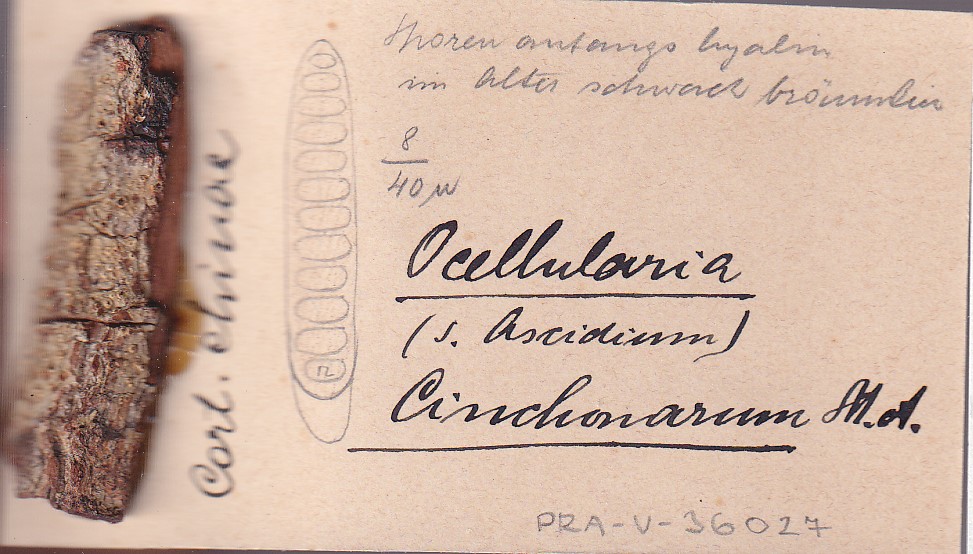 Sporen anfangs hyalin
im Alter schwach bräunlich
8
40 µ
Ocellularia
(s. Ascidium)
Cinchonarum
Cort. Chinae
PRA-V-36027